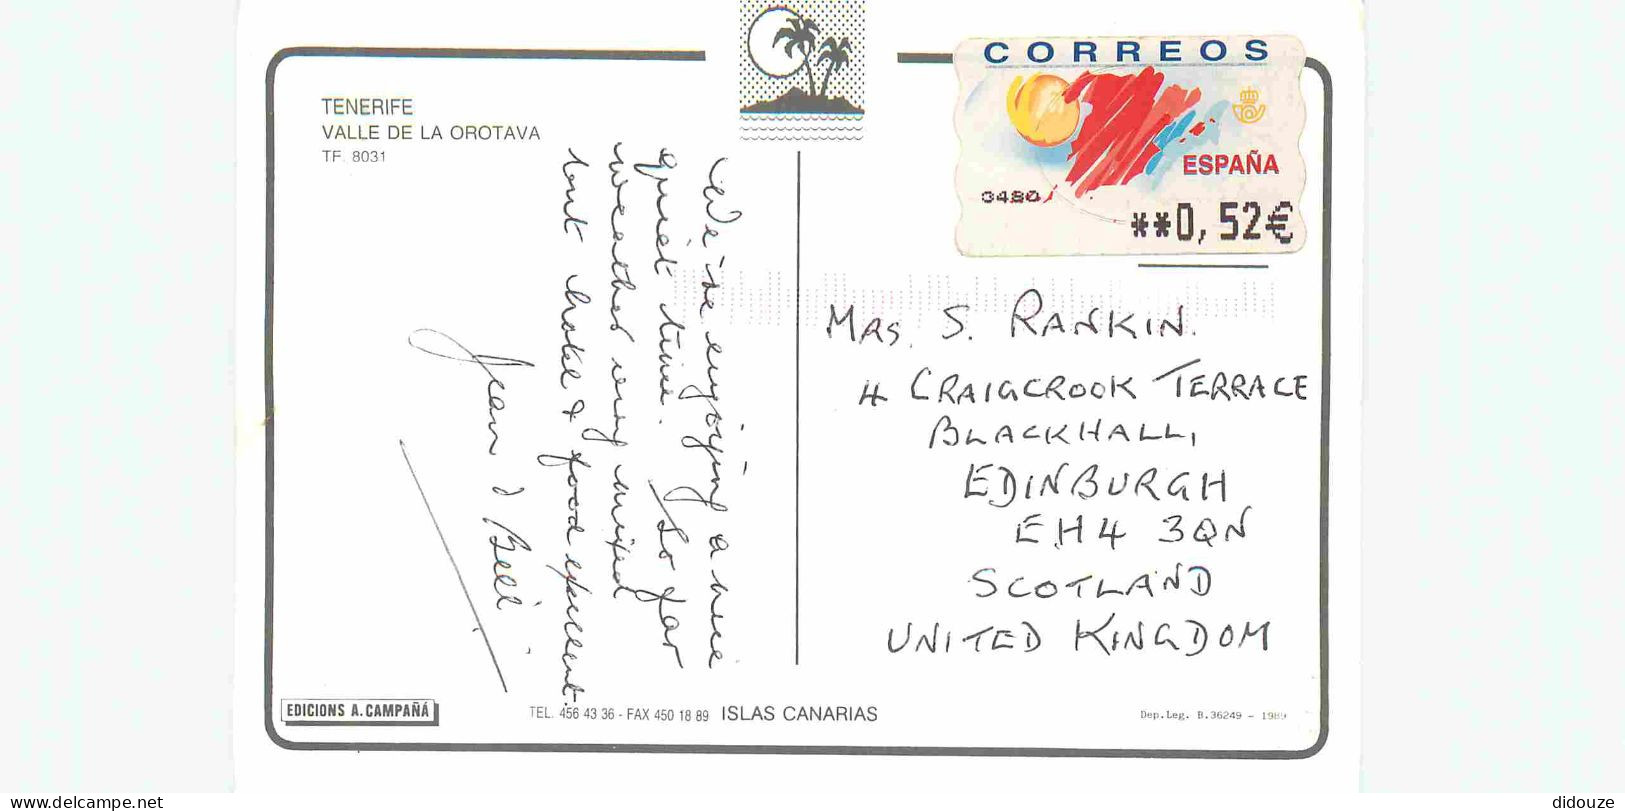 TENERIFE
VALLE DE LA OROTAVA
TF. 8031
We're enjoying a nice
quiet time. So far
weather very mixed
but hotel & food excellent.
Jean & Bill
CORREOS
ESPAÑA
0480
**0,52€
MRS. S. RANKIN.
4 CRAIGCROOK TERRACE
BLACKHALL,
EDINBURGH
EH4 3QN
SCOTLAND
UNITED KINGDOM
EDICIONS A. CAMPAÑÁ
TEL. 456 43 36 - FAX 450 18 89 ISLAS CANARIAS
Dep.Leg. B.36249 - 1989
www.delcampe.net
didouze